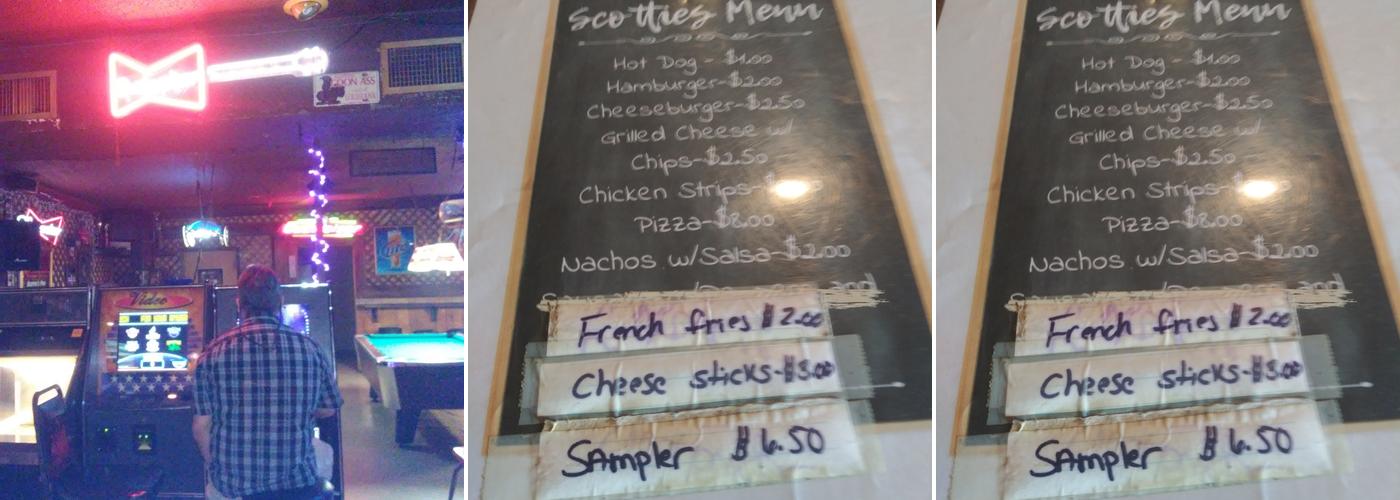 Video
Scotties Menu
Hot Dog - $1.00
Hamburger-$2.00
Cheeseburger-$2.50
Grilled Cheese w/
Chips-$2.50
Chicken Strips-
Pizza-$8.00
Nachos w/Salsa-$2.00
and
French fries $2.00
Cheese sticks-$3.00
SAmpler $6.50
Scotties Menu
Hot Dog - $1.00
Hamburger-$2.00
Cheeseburger-$2.50
Grilled Cheese w/
Chips-$2.50
Chicken Strips-
Pizza-$8.00
Nachos w/Salsa-$2.00
and
French fries $2.00
Cheese sticks-$3.00
SAmpler $6.50